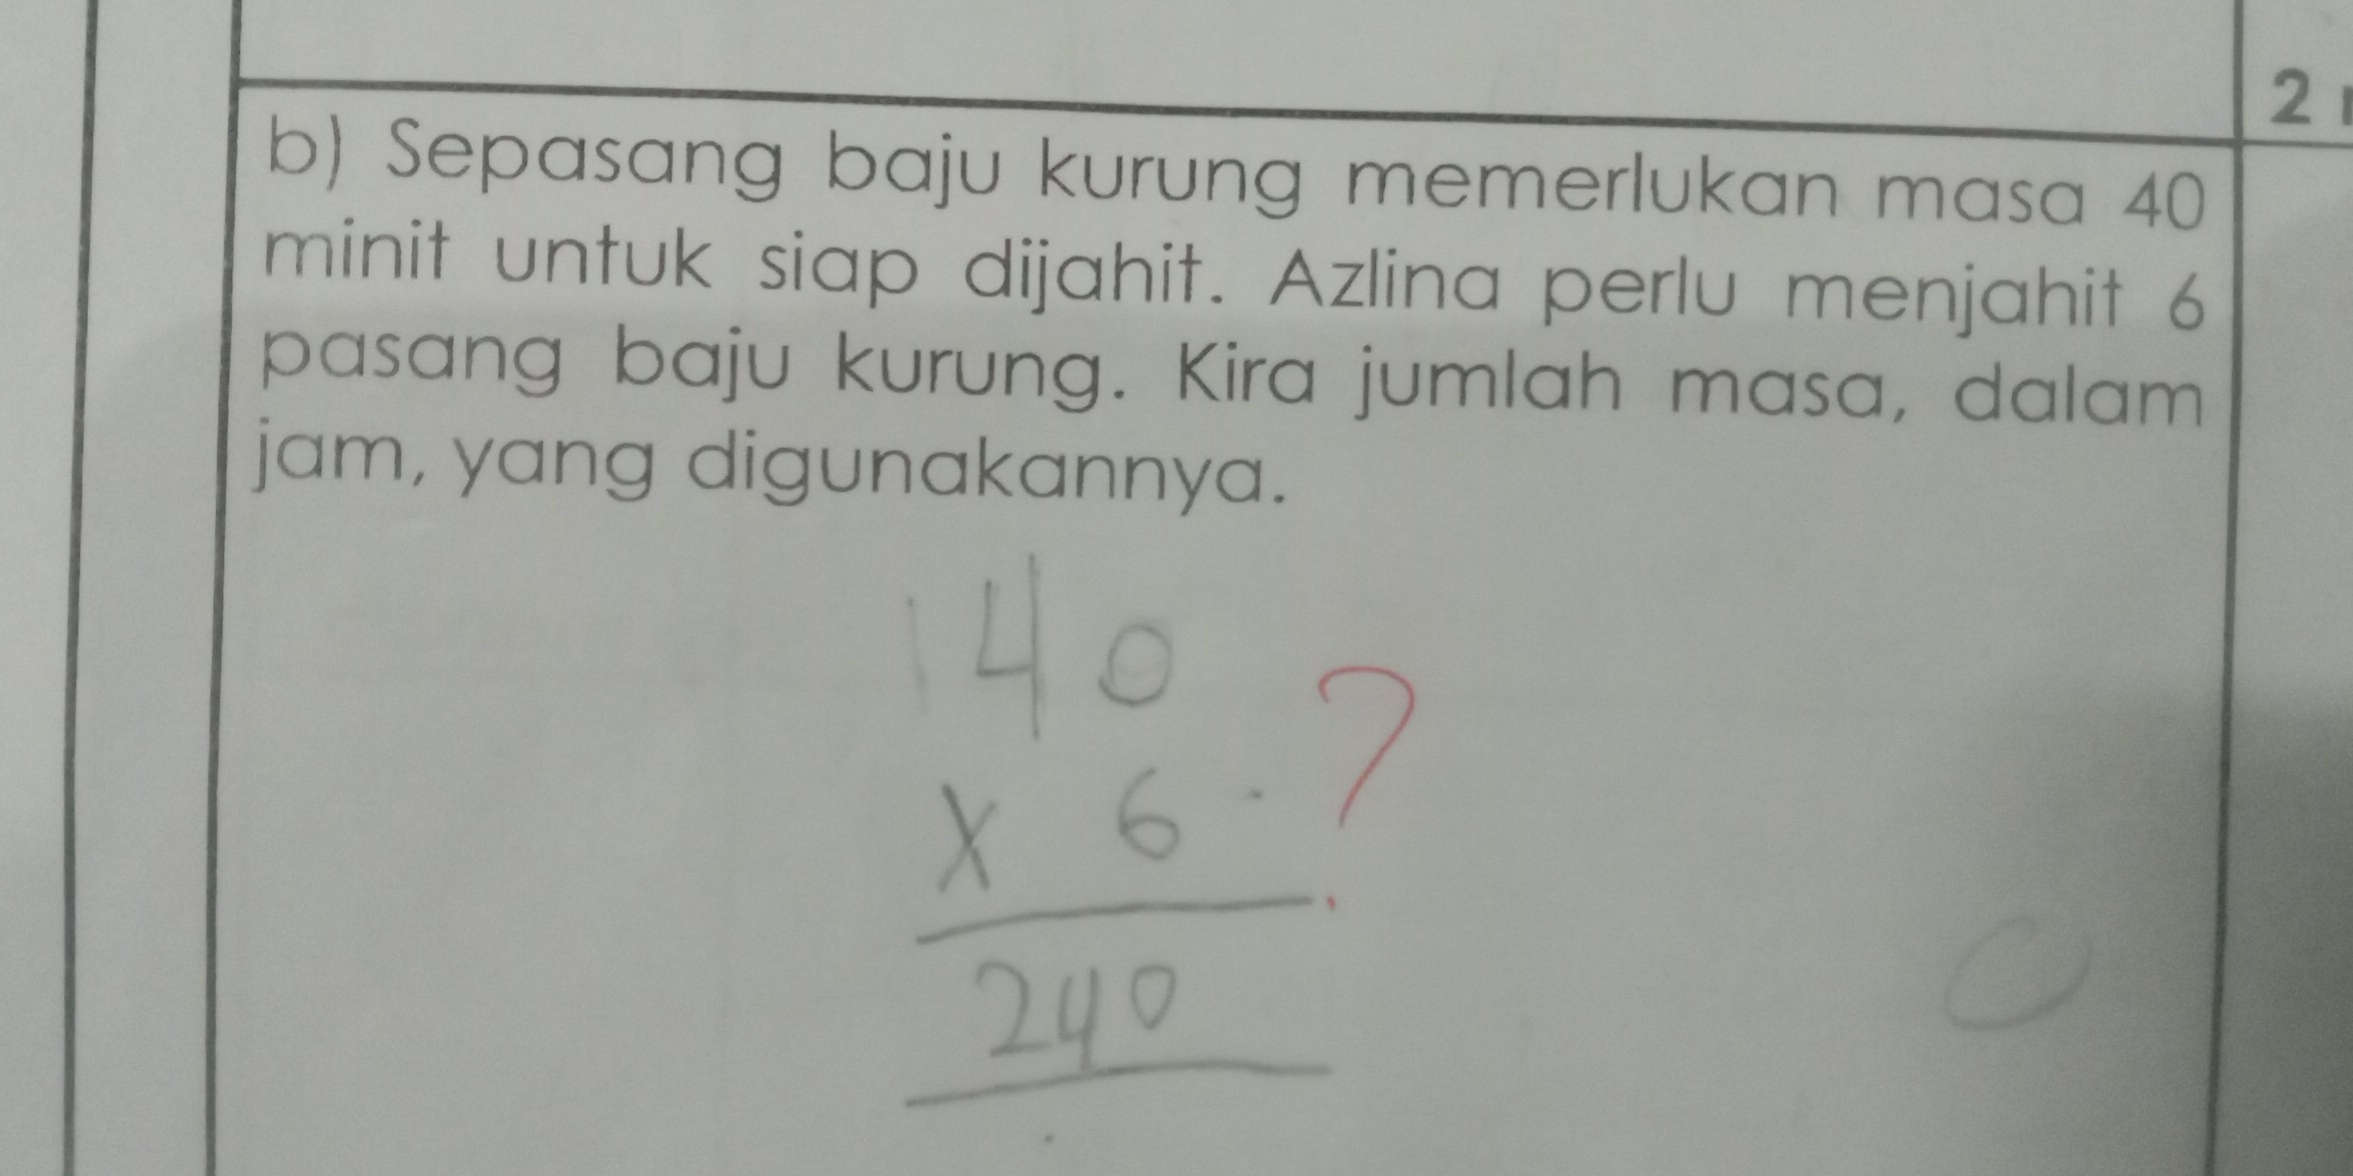 2
b) Sepasang baju kurung memerlukan masa 40
minit untuk siap dijahit. Azlina perlu menjahit 6
pasang baju kurung. Kira jumlah masa, dalam
jam, yang digunakannya.
40
x 6
?
240